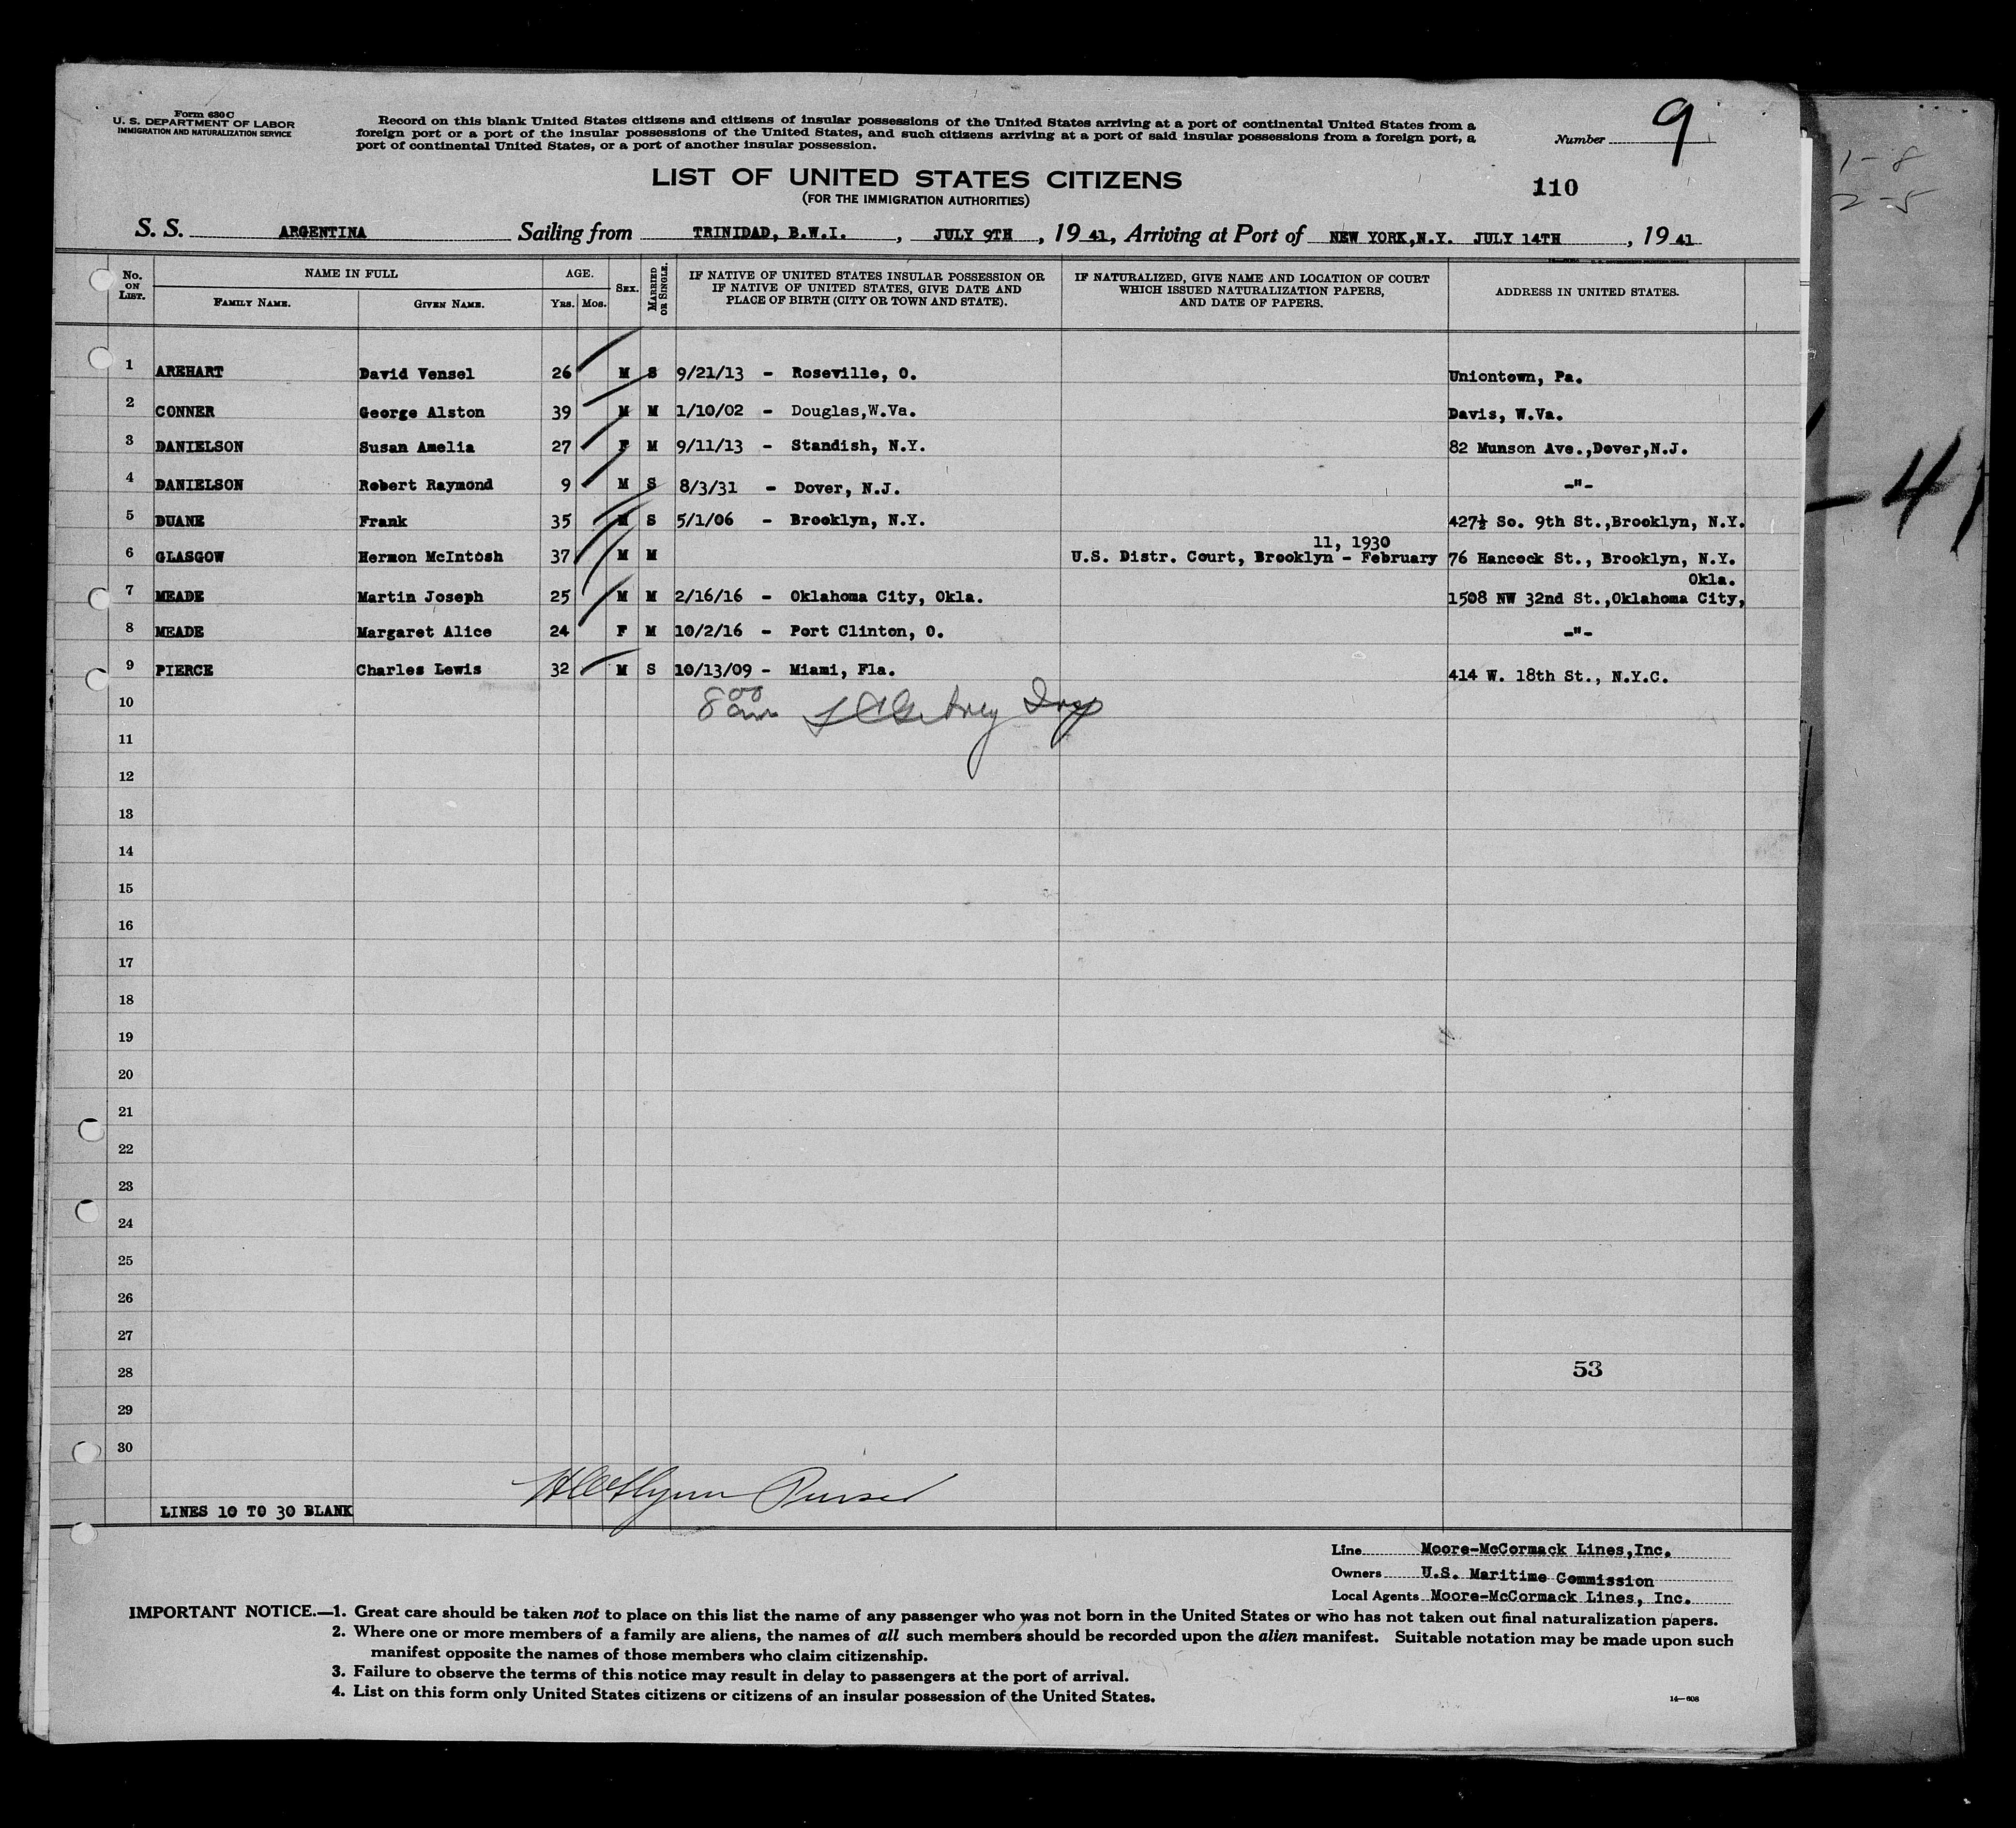 Form 630 C
U. S. DEPARTMENT OF LABOR
IMMIGRATION AND NATURALIZATION SERVICE
Record on this blank United States citizens and citizens of insular possessions of the United States arriving at a port of continental United States from a
foreign port or a port of the insular possessions of the United States, and such citizens arriving at a port of said insular possessions from a foreign port, a
port of continental United States, or a port of another insular possession.
Number 9
LIST OF UNITED STATES CITIZENS
(FOR THE IMMIGRATION AUTHORITIES)
110
S. S. ARGENTINA Sailing from TRINIDAD, B.W.I. , JULY 9TH , 19 41, Arriving at Port of NEW YORK,N.Y. JULY 14TH , 19 41
No. ON LIST. NAME IN FULL FAMILY NAME. GIVEN NAME. AGE. YRS. MOS. SEX. MARRIED OR SINGLE. IF NATIVE OF UNITED STATES INSULAR POSSESSION OR IF NATIVE OF UNITED STATES, GIVE DATE AND PLACE OF BIRTH (CITY OR TOWN AND STATE). IF NATURALIZED, GIVE NAME AND LOCATION OF COURT WHICH ISSUED NATURALIZATION PAPERS, AND DATE OF PAPERS. ADDRESS IN UNITED STATES.
1 AREHART David Vensel 26 M S 9/21/13 - Roseville, O. Uniontown, Pa.
2 CONNER George Alston 39 M M 1/10/02 - Douglas,W.Va. Davis, W.Va.
3 DANIELSON Susan Amelia 27 F M 9/11/13 - Standish, N.Y. 82 Munson Ave.,Dover,N.J.
4 DANIELSON Robert Raymond 9 M S 8/3/31 - Dover, N.J. -"-
5 DUANE Frank 35 M S 5/1/06 - Brooklyn, N.Y. 427½ So. 9th St.,Brooklyn, N.Y.
11, 1930
6 GLASGOW Hermon McIntosh 37 M M U.S. Distr. Court, Brooklyn - February 76 Hancock St., Brooklyn, N.Y.
Okla.
7 MEADE Martin Joseph 25 M M 2/16/16 - Oklahoma City, Okla. 1508 NW 32nd St.,Oklahoma City,
8 MEADE Margaret Alice 24 F M 10/2/16 - Port Clinton, O. -"-
9 PIERCE Charles Lewis 32 M S 10/13/09 - Miami, Fla. 414 W. 18th St., N.Y.C.
10 8 00 am
11
12
13
14
15
16
17
18
19
20
21
22
23
24
25
26
27
28 53
29
30
Purser
LINES 10 TO 30 BLANK
Line Moore-McCormack Lines,Inc.
Owners U.S. Maritime Commission
Local Agents Moore-McCormack Lines, Inc.
IMPORTANT NOTICE.—1. Great care should be taken not to place on this list the name of any passenger who was not born in the United States or who has not taken out final naturalization papers.
2. Where one or more members of a family are aliens, the names of all such members should be recorded upon the alien manifest. Suitable notation may be made upon such
manifest opposite the names of those members who claim citizenship.
3. Failure to observe the terms of this notice may result in delay to passengers at the port of arrival.
4. List on this form only United States citizens or citizens of an insular possession of the United States.
14—608
1-8
2-5
-41